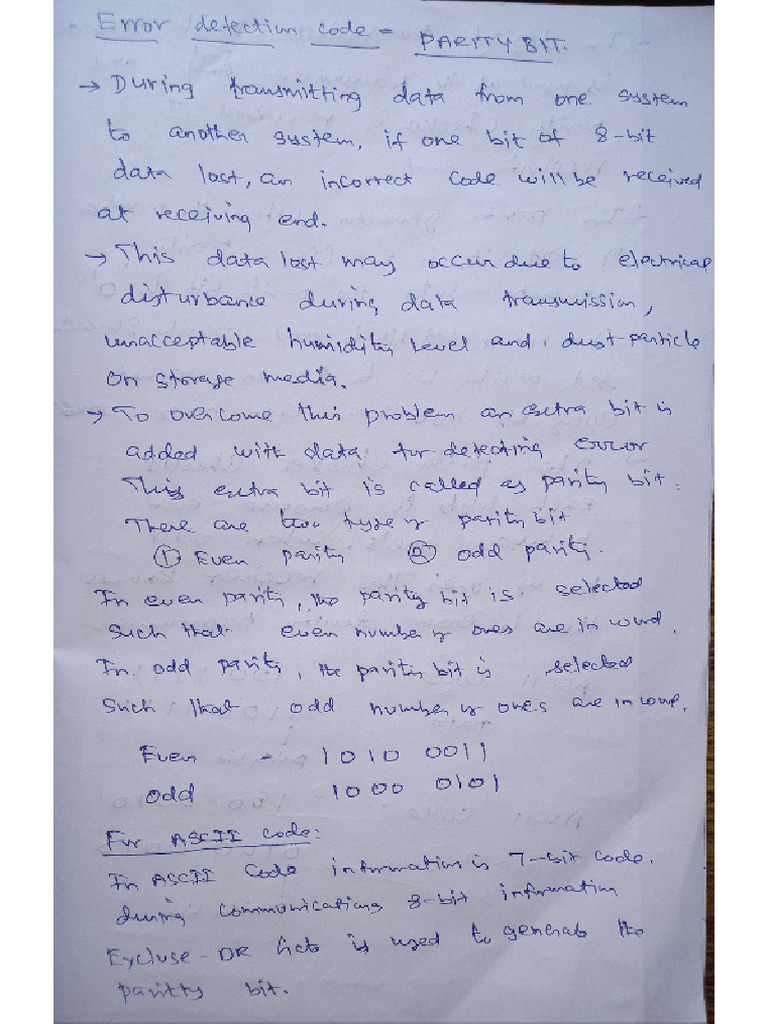 Error detection code = PARITY BIT.
→ During transmitting data from one system
to another system, if one bit of 8-bit
data lost, an incorrect code will be received
at receiving end.
→ This data lost may occur due to electrical
disturbance during data transmission,
unacceptable humidity level and dust-particle
on storage media.
→ To overcome this problem an extra bit is
added with data for detecting error
This extra bit is called as parity bit.
There are two type of parity bit
① Even parity ② odd parity.
In even parity, the parity bit is selected
such that even number of ones are in word.
In odd parity, the parity bit is selected
Such that odd number of ones are in word.
Even - 1010 0011
odd 1000 0101
For ASCII code:
In ASCII Code information is 7-bit code.
during communicating 8-bit information
Excluse-OR Gate is used to generate the
paritty bit.